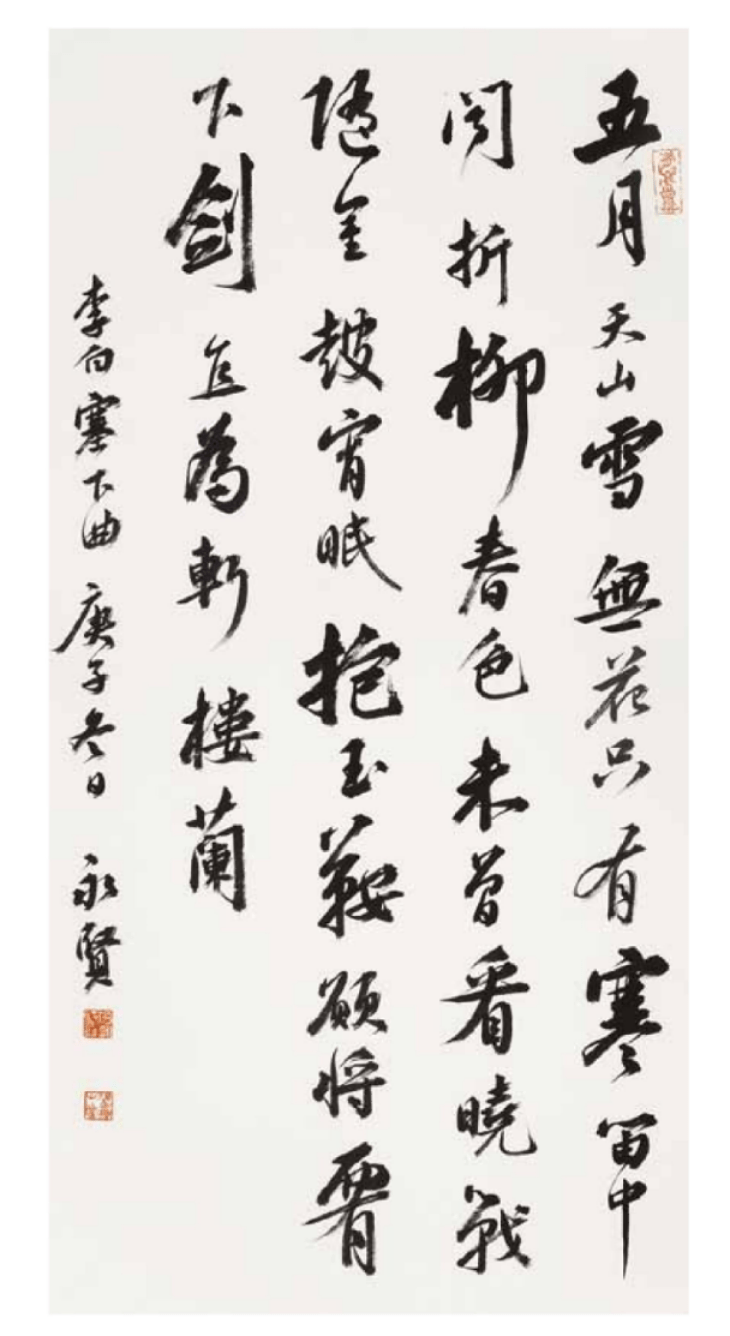 五月天山雪無花只有寒笛中
聞折柳春色未曾看曉戰
隨金鼓宵眠抱玉鞍願將腰
下劍直為斬樓蘭
李白塞下曲 庚子冬日 永賢